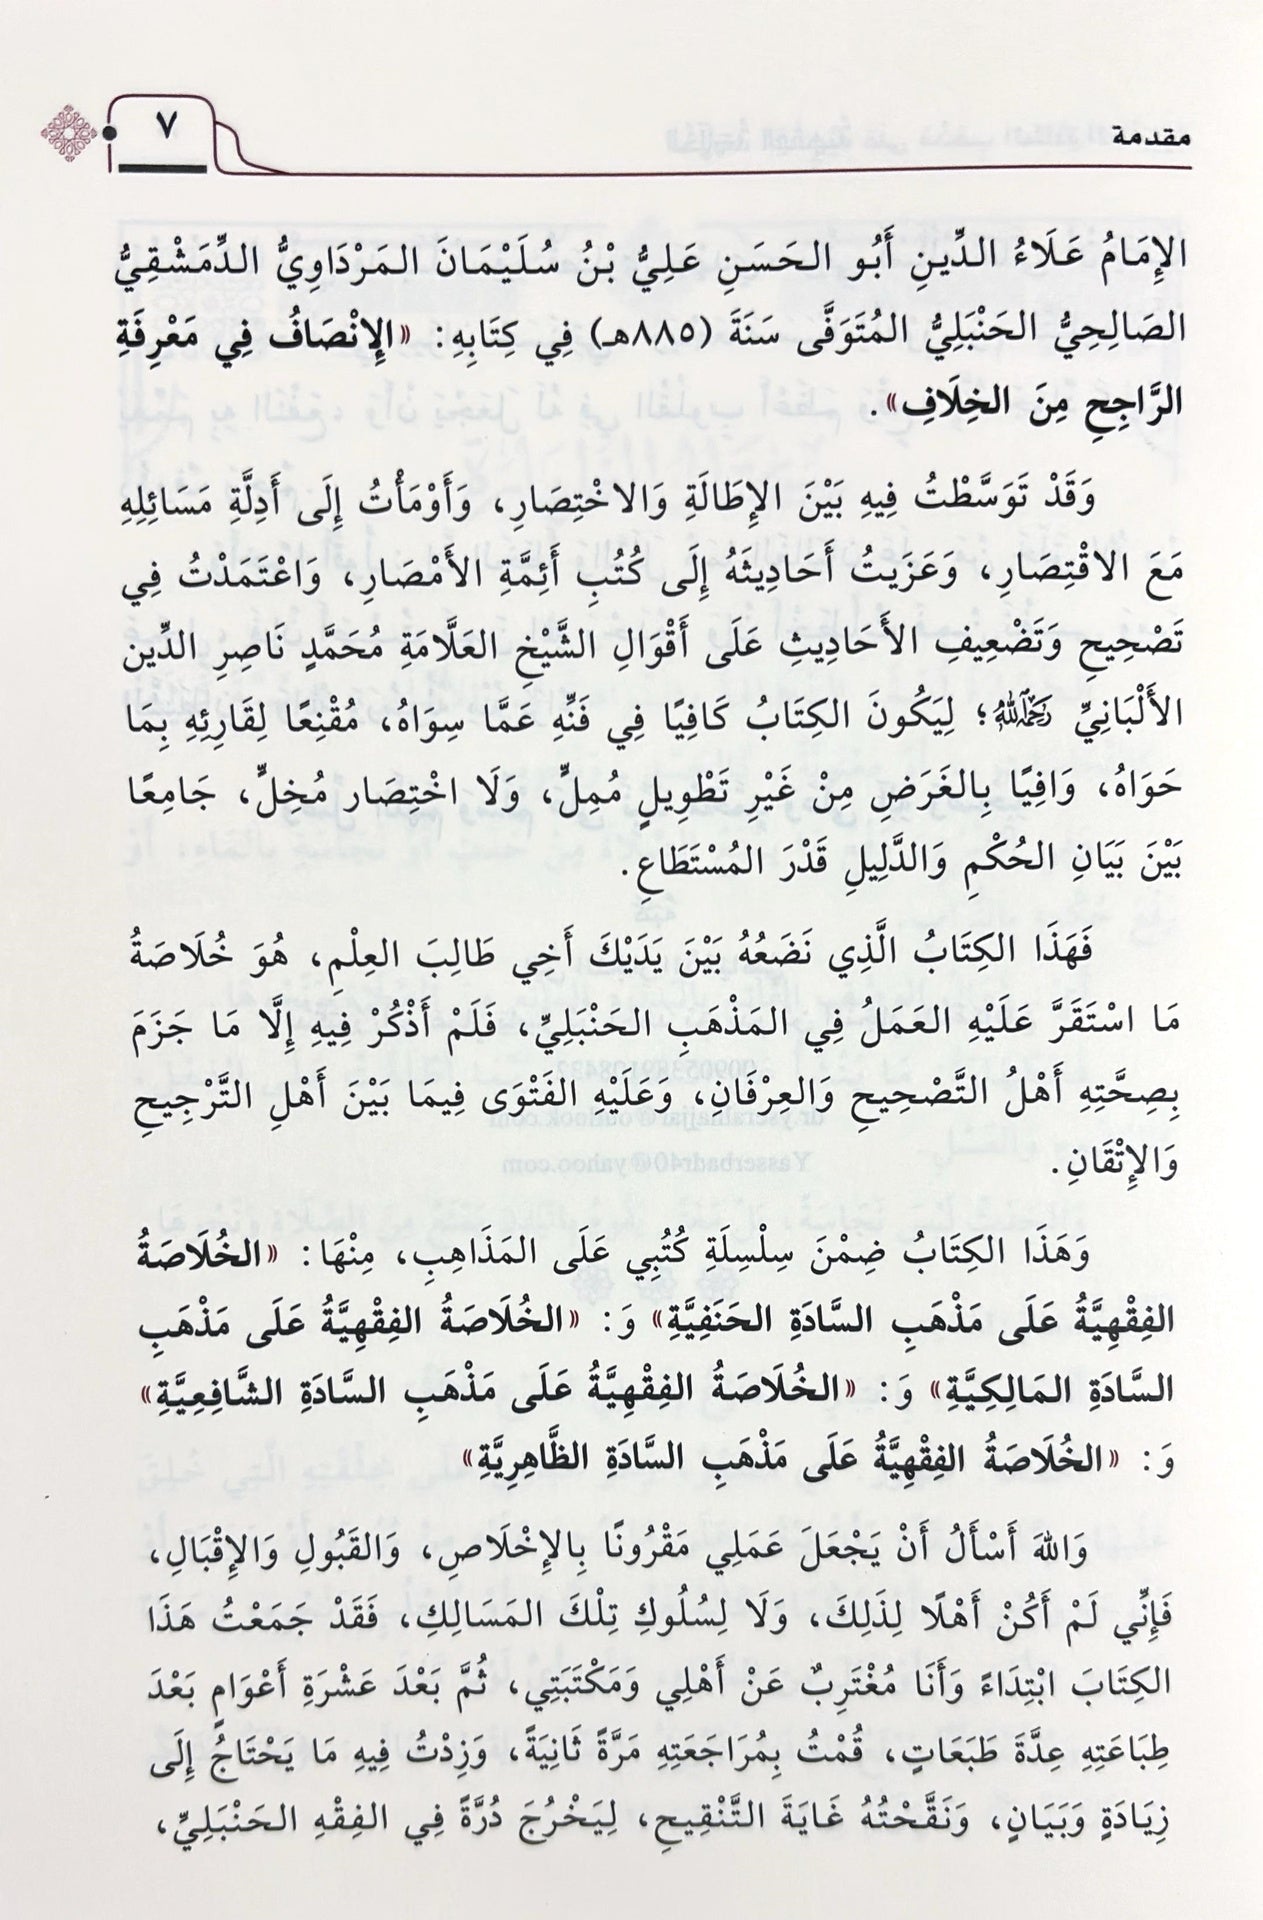 مقدمة
٧
الإِمَامُ عَلَاءُ الدِّينِ أَبُو الحَسَنِ عَلِيُّ بْنُ سُلَيْمَانَ المَرْدَاوِيُّ الدِّمَشْقِيُّ
الصَالِحِيُّ الحَنْبَلِيُّ المُتَوَفَّى سَنَةَ (٨٨٥هـ) فِي كِتَابِهِ: «الإِنْصَافُ فِي مَعْرِفَةِ
الرَّاجِحِ مِنَ الخِلَافِ».
وَقَدْ تَوَسَّطْتُ فِيهِ بَيْنَ الإِطَالَةِ وَالاخْتِصَارِ، وَأَوْمَأْتُ إِلَى أَدِلَّةِ مَسَائِلِهِ
مَعَ الاقْتِصَارِ، وَعَزَيتُ أَحَادِيثَهُ إِلَى كُتُبِ أَئِمَّةِ الأَمْصَارِ، وَاعْتَمَدْتُ فِي
تَصْحِيحِ وَتَضْعِيفِ الأَحَادِيثِ عَلَى أَقْوَالِ الشَّيْخِ العَلَّامَةِ مُحَمَّدٍ نَاصِرِ الدِّين
الأَلْبَانِيِّ رَحِمَهُ اللهُ؛ لِيَكُونَ الكِتَابُ كَافِيًا فِي فَنِّهِ عَمَّا سِوَاهُ، مُقْنِعًا لِقَارِئِهِ بِمَا
حَوَاهُ، وَافِيًا بِالغَرَضِ مِنْ غَيْرِ تَطْوِيلٍ مُمِلٍّ، وَلَا اخْتِصَار مُخِلٍّ، جَامِعًا
بَيْنَ بَيَانِ الحُكْمِ وَالدَّلِيلِ قَدْرَ المُسْتَطَاعِ.
فَهَذَا الكِتَابُ الَّذِي نَضَعُهُ بَيْنَ يَدَيْكَ أَخِي طَالِبَ العِلْمِ، هُوَ خُلَاصَةُ
مَا اسْتَقَرَّ عَلَيْهِ العَمَلُ فِي المَذْهَبِ الحَنْبَلِيِّ، فَلَمْ أَذْكُرْ فِيهِ إِلَّا مَا جَزَمَ
بِصِحَّتِهِ أَهْلُ التَّصْحِيحِ وَالعِرْفَانِ، وَعَلَيْهِ الفَتْوَى فِيمَا بَيْنَ أَهْلِ التَّرْجِيحِ
وَالإِتْقَانِ.
وَهَذَا الكِتَابُ ضِمْنَ سِلْسِلَةِ كُتُبِي عَلَى المَذَاهِبِ، مِنْهَا: «الخُلَاصَةُ
الفِقْهِيَّةُ عَلَى مَذْهَبِ السَّادَةِ الحَنَفِيَّةِ» وَ: «الخُلَاصَةُ الفِقْهِيَّةُ عَلَى مَذْهَبِ
السَّادَةِ المَالِكِيَّةِ» وَ: «الخُلَاصَةُ الفِقْهِيَّةُ عَلَى مَذْهَبِ السَّادَةِ الشَّافِعِيَّةِ»
وَ: «الخُلَاصَةُ الفِقْهِيَّةُ عَلَى مَذْهَبِ السَّادَةِ الظَّاهِرِيَّةِ»
وَاللهَ أَسْأَلُ أَنْ يَجْعَلَ عَمَلِي مَقْرُونًا بِالإِخْلَاصِ، وَالقَبُولِ وَالإِقْبَالِ،
فَإِنِّي لَمْ أَكُنْ أَهْلًا لِذَلِكَ، وَلَا لِسُلُوكِ تِلْكَ المَسَالِكِ، فَقَدْ جَمَعْتُ هَذَا
الكِتَابَ ابْتِدَاءً وَأَنَا مُغْتَرِبٌ عَنْ أَهْلِي وَمَكْتَبَتِي، ثُمَّ بَعْدَ عَشْرَةِ أَعْوَامٍ بَعْدَ
طِبَاعَتِهِ عِدَّةَ طَبَعَاتٍ، قُمْتُ بِمُرَاجَعَتِهِ مَرَّةً ثَانِيَةً، وَزِدْتُ فِيهِ مَا يَحْتَاجُ إِلَى
زِيَادَةٍ وَبَيَانٍ، وَنَقَّحْتُهُ غَايَةَ التَّنْقِيحِ، لِيَخْرُجَ دُرَّةً فِي الفِقْهِ الحَنْبَلِيِّ،